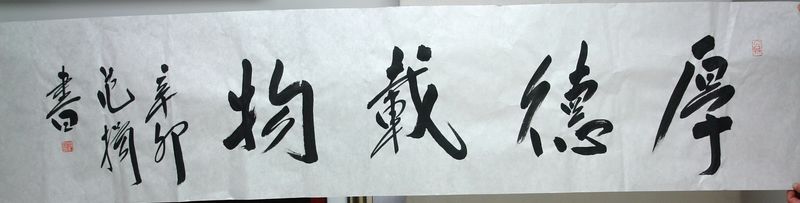 厚德載物
辛卯
范
書